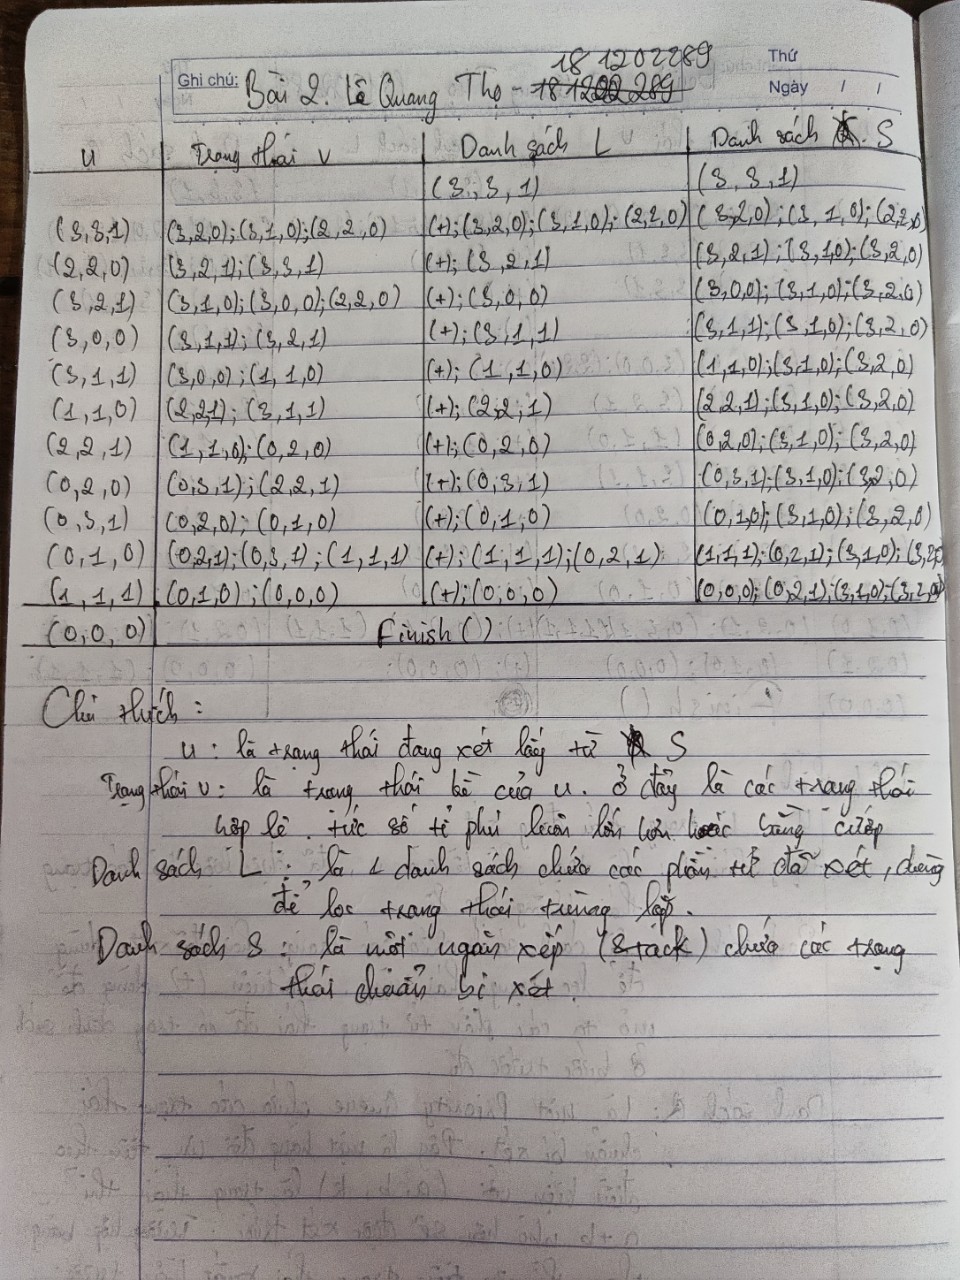 181202289
Thứ
Ghi chú: Bài 2. Lê Quang Thọ - 181202289
Ngày / /
u | Trạng thái v | Danh sách L | Danh sách S
(3,3,1) | (3,3,1)
(3,3,1) | (3,2,0);(3,1,0);(2,2,0) | (+);(3,2,0);(3,1,0);(2,2,0) | (3,2,0);(3,1,0);(2,2,0)
(2,2,0) | (3,2,1);(3,3,1) | (+);(3,2,1) | (3,2,1);(3,1,0);(3,2,0)
(3,2,1) | (3,1,0);(3,0,0);(2,2,0) | (+);(3,0,0) | (3,0,0);(3,1,0);(3,2,0)
(3,0,0) | (3,1,1);(3,2,1) | (+);(3,1,1) | (3,1,1);(3,1,0);(3,2,0)
(3,1,1) | (3,0,0);(1,1,0) | (+);(1,1,0) | (1,1,0);(3,1,0);(3,2,0)
(1,1,0) | (2,2,1);(3,1,1) | (+);(2,2,1) | (2,2,1);(3,1,0);(3,2,0)
(2,2,1) | (1,1,0);(0,2,0) | (+);(0,2,0) | (0,2,0);(3,1,0);(3,2,0)
(0,2,0) | (0,3,1);(2,2,1) | (+);(0,3,1) | (0,3,1);(3,1,0);(3,2,0)
(0,3,1) | (0,2,0);(0,1,0) | (+);(0,1,0) | (0,1,0);(3,1,0);(3,2,0)
(0,1,0) | (0,2,1);(0,3,1);(1,1,1) | (+);(1,1,1);(0,2,1) | (1,1,1);(0,2,1);(3,1,0);(3,2,0)
(1,1,1) | (0,1,0);(0,0,0) | (+);(0,0,0) | (0,0,0);(0,2,1);(3,1,0);(3,2,0)
(0,0,0) | Finish()
Chú thích:
u: là trạng thái đang xét lấy từ S
Trạng thái v: là trạng thái kề của u. ở đây là các trạng thái
hợp lệ. tức số tỉ phú luôn lớn hơn hoặc bằng cướp
Danh sách L: là 1 danh sách chứa các phần tử đã xét, dùng
để lọc trạng thái trùng lặp.
Danh sách S: là một ngăn xếp (Stack) chứa các trạng
thái chuẩn bị xét.